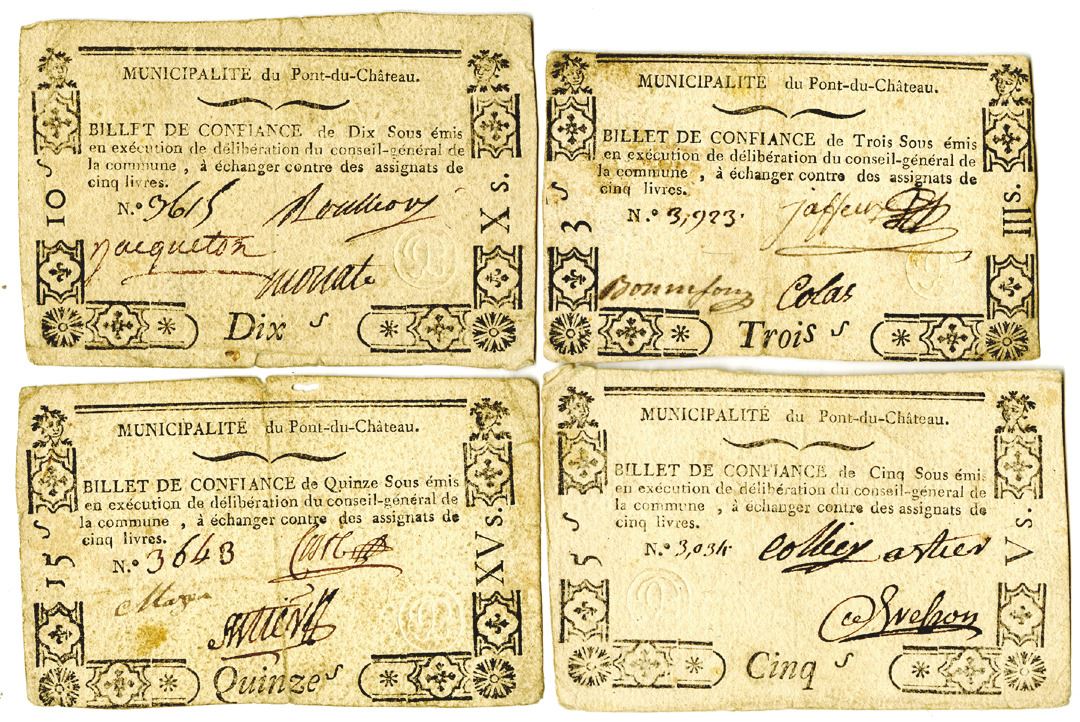 MUNICIPALITÉ du Pont-du-Château.
BILLET DE CONFIANCE de Dix Sous émis
en exécution de délibération du conseil-général de
la commune , à échanger contre des assignats de
cinq livres.
N.º 3615
Jacqueton
monate
10 s
X s.
Dix s
MUNICIPALITÉ du Pont-du-Château.
BILLET DE CONFIANCE de Trois Sous émis
en exécution de délibération du conseil-général de
la commune , à échanger contre des assignats de
cinq livres.
N.º 3,923.
Bonnefoy Colas
3 s
III s.
Trois s
MUNICIPALITÉ du Pont-du-Château.
BILLET DE CONFIANCE de Quinze Sous émis
en exécution de délibération du conseil-général de
la commune , à échanger contre des assignats de
cinq livres.
N.º 3643
15 s
XV s.
Quinze s
MUNICIPALITÉ du Pont-du-Château.
BILLET DE CONFIANCE de Cinq Sous émis
en exécution de délibération du conseil-général de
la commune , à échanger contre des assignats de
cinq livres.
N.º 3,034 Collier artier
5 s
V s.
Cinq s